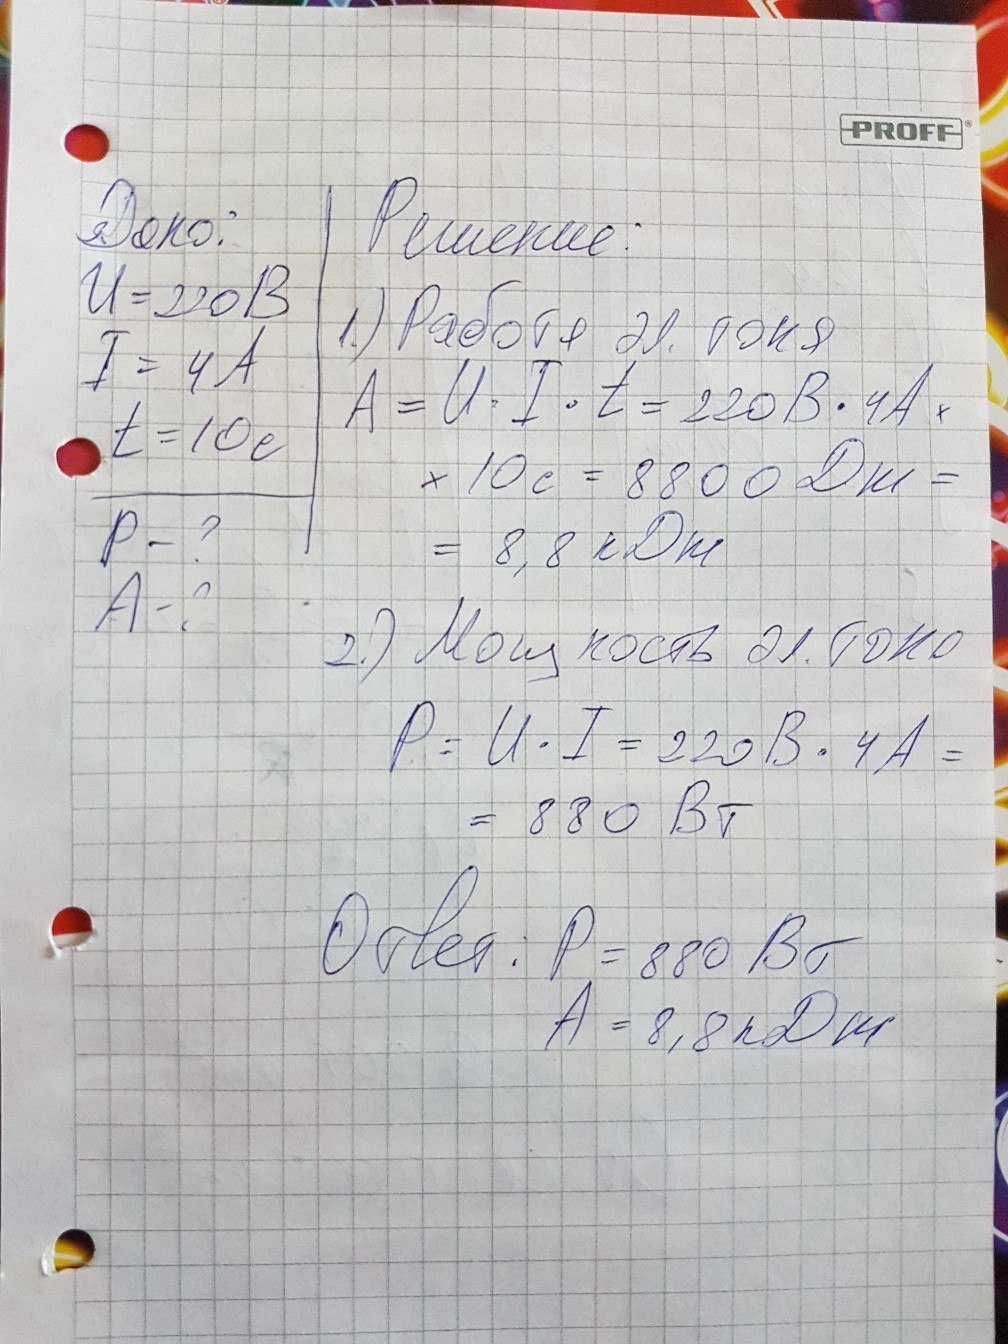 PROFF®
Дано:
U = 220 В
I = 4 А
t = 10 с
P - ?
A - ?
Решение:
1.) Работа эл. тока
A = U · I · t = 220 В · 4 А ×
× 10 с = 8800 Дж =
= 8,8 кДж
2.) Мощность эл. тока
P = U · I = 220 В · 4 А =
= 880 Вт
Ответ: P = 880 Вт
A = 8,8 кДж